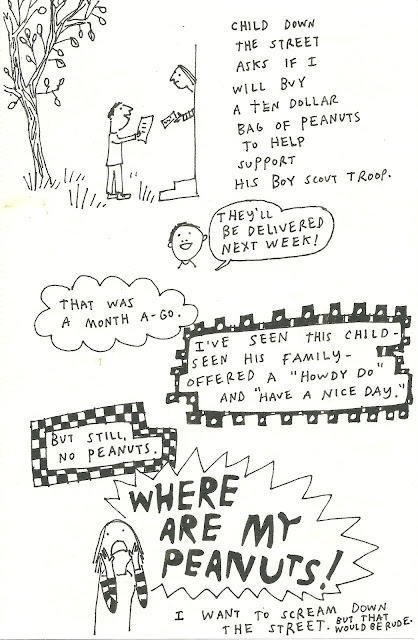 CHILD DOWN
THE STREET
ASKS IF I
WILL BUY
A TEN DOLLAR
BAG OF PEANUTS
TO HELP
SUPPORT
HIS BOY SCOUT TROOP.
THEY'LL
BE DELIVERED
NEXT WEEK!
THAT WAS
A MONTH A-GO.
I'VE SEEN THIS CHILD-
SEEN HIS FAMILY-
OFFERED A "HOWDY DO"
AND "HAVE A NICE DAY."
BUT STILL,
NO PEANUTS.
WHERE
ARE MY
PEANUTS!
I WANT TO SCREAM DOWN
THE STREET. BUT THAT
WOULD BE RUDE.